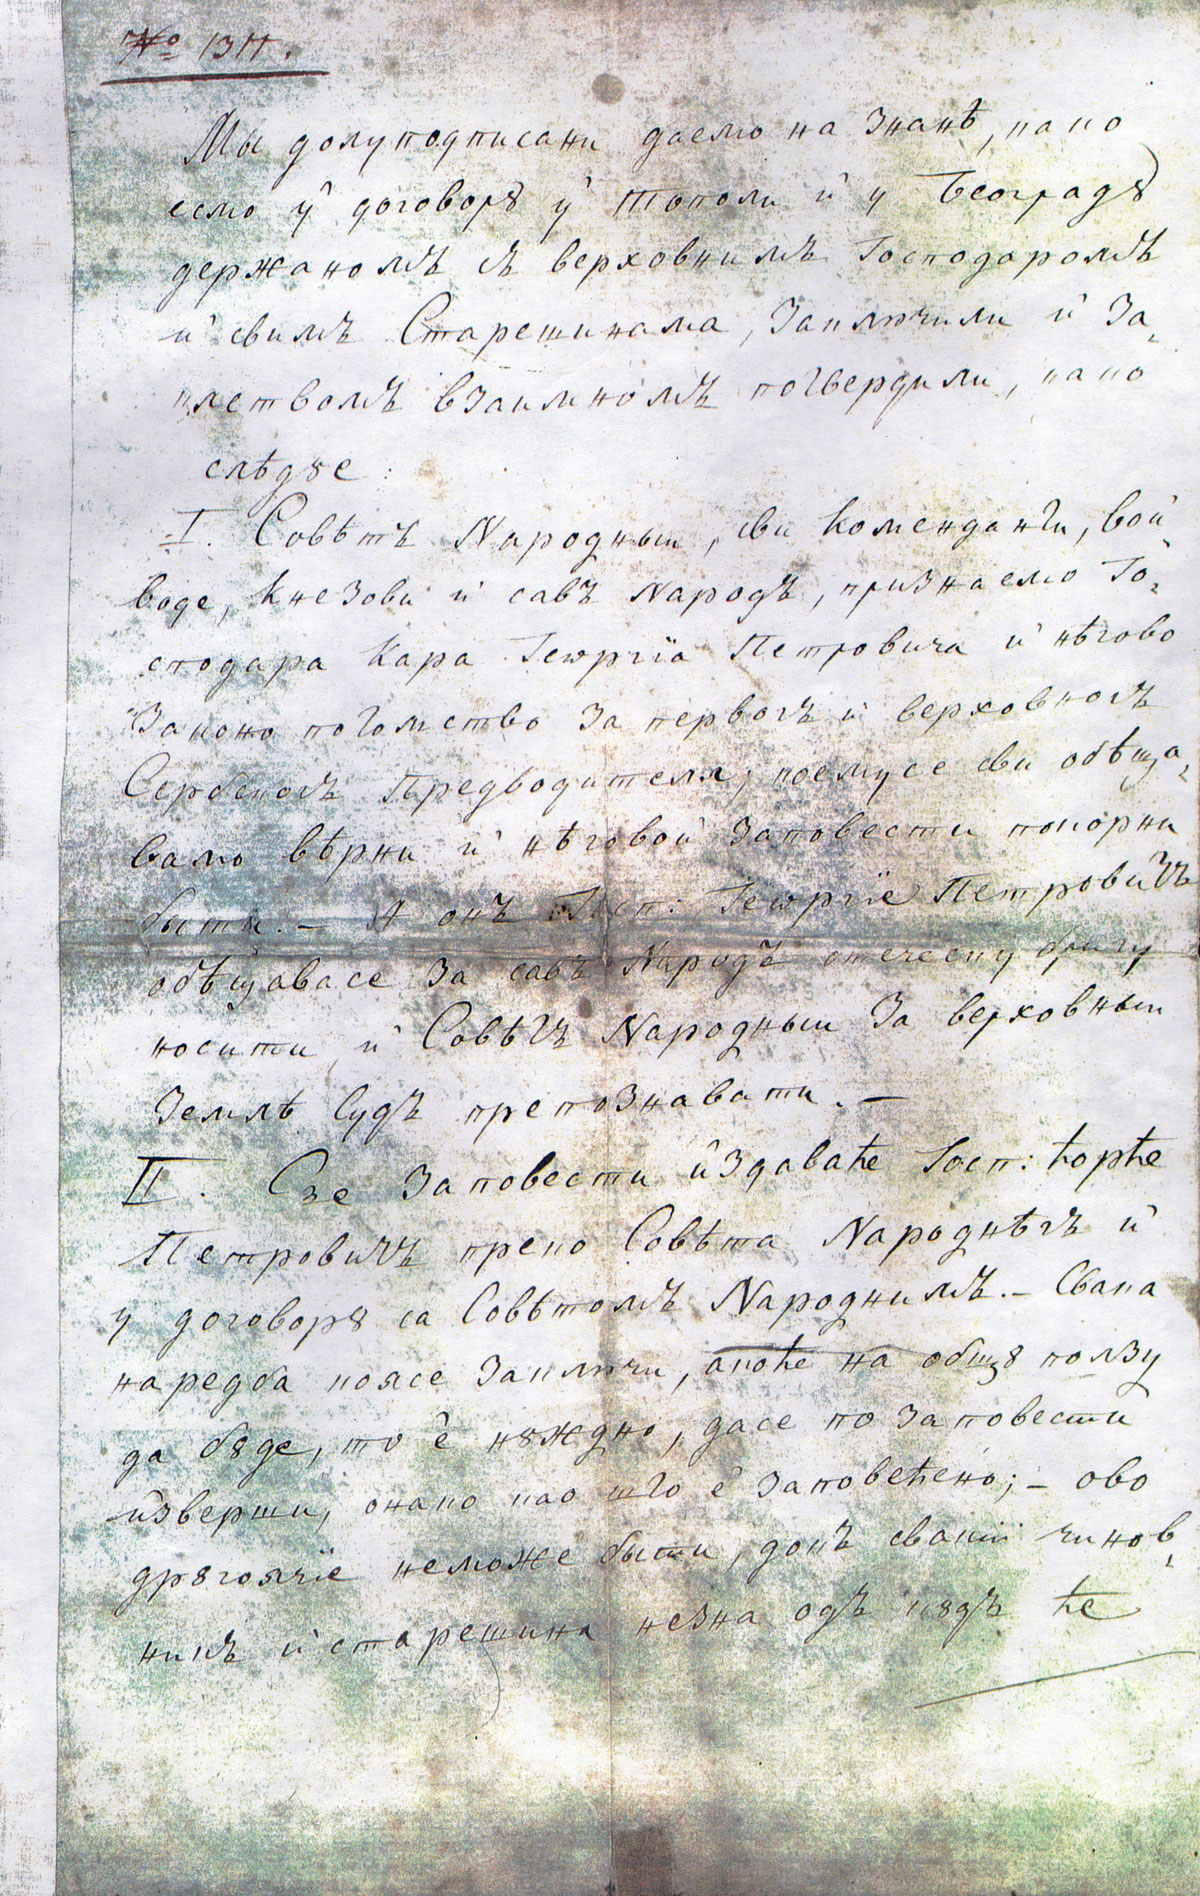 № 1311.
Мы долуподписани даемо на знанѣ, како
есмо у̀ договорꙋ у̀ Тополи ѝ у Београдꙋ
держаномъ съ верховнимъ Господаромъ
ѝ свимъ Старешинама, Заключили ѝ За-
клетвомъ взаимномъ потвердили, како
слѣдꙋе:
I. Совѣтъ Народный, сви Коменданти, Вой-
воде, Кнезови ѝ савъ Народъ, признаемо Го-
сподара Кара Геѡргїа Петровича ѝ нѣгово
Законо потомство за первогъ ѝ верховногъ
Сербскогъ Предводителя, коемусе сви обѣща-
вамо вѣрни ѝ нѣговой заповести покорни
быти. – А онъ Госп: Геѡргїе Петровичъ
обѣщавасе за савъ Народъ отеческу бригу
носити, ѝ Совѣтъ Народный За верховный
Землѣ Судъ препознавати. –
II. Све Заповести ѝздаваће Госп: Ђорђе
Петровичъ преко Совѣта Народнѣгъ ѝ
у договорꙋ са Совѣтомъ Народнимъ. – Свака
наредба коясе Заключи, акоће на общꙋ ползу
да бꙋде, то є̀ нꙋждно, дасе по заповести
ѝзверши, онако као што є̀ заповеђено; – ово
дрꙋгоячїе неможе быти, докъ свакїй чинов-
никъ ѝ старешина незна одъ кꙋдъ ће